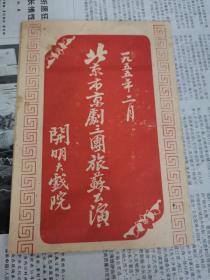 一九五五年二月
北京市京剧三團旅蘇公演
開明大戲院